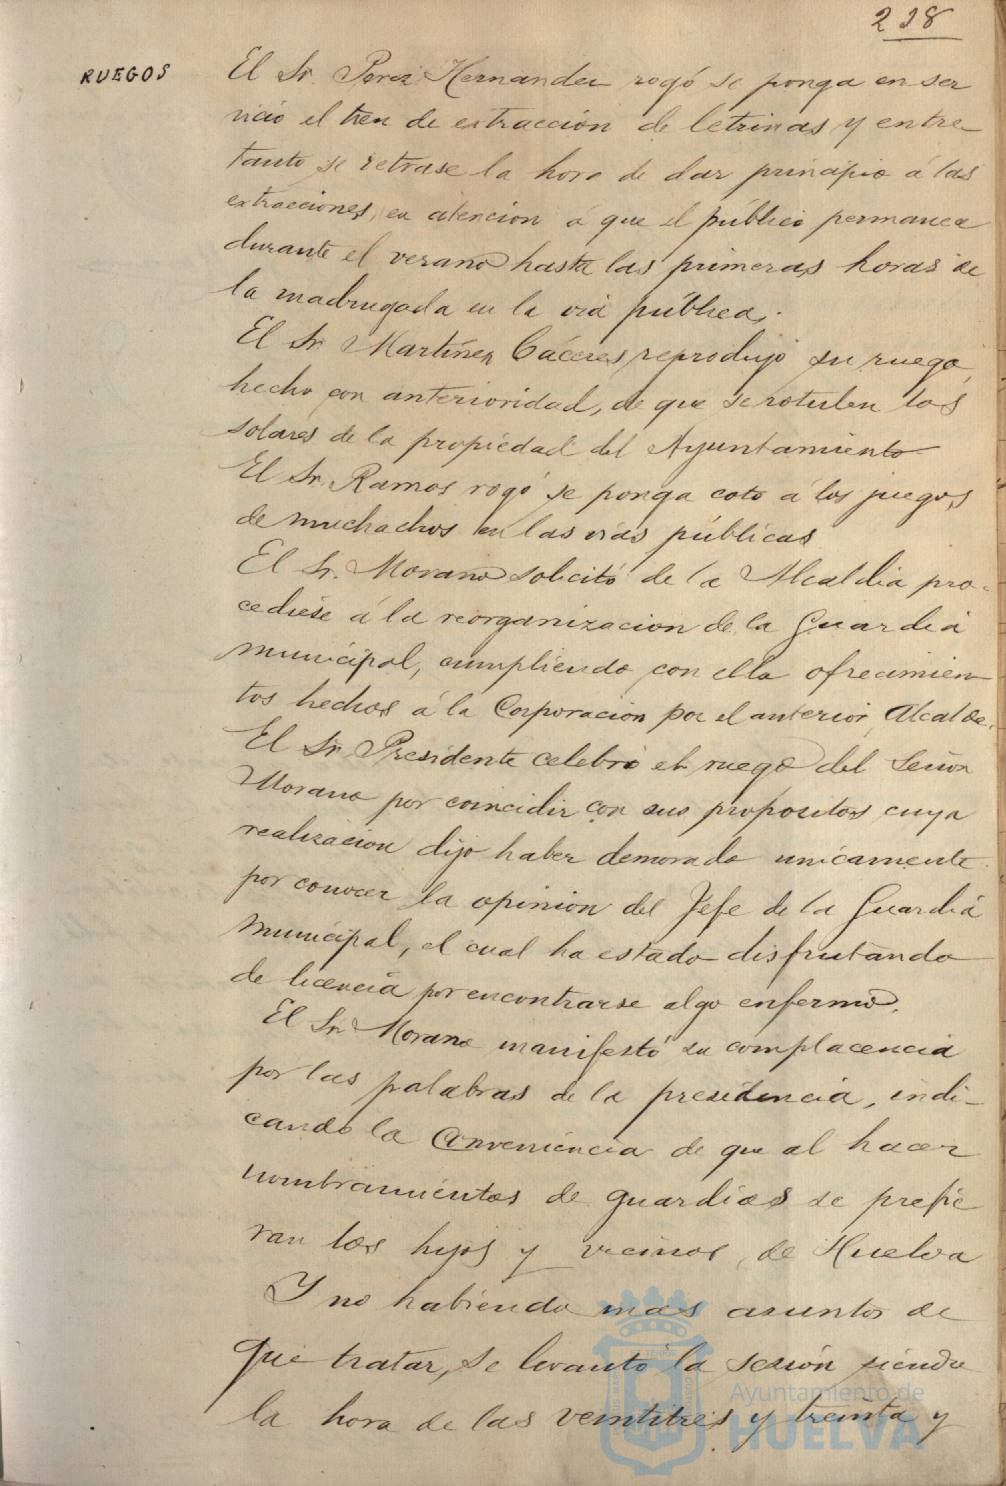 218
RUEGOS
El Sr. Perez Hernandez rogó se ponga en ser
vicio el tren de extraccion de letrinas y entre
tanto se retrase la hora de dar principio á las
extracciones, en atencion á que el público permanece
durante el verano hasta las primeras horas de
la madrugada en la via pública.
El Sr. Martinez Cáceres reprodujo su ruego,
hecho con anterioridad, de que se rotulen los
solares de la propiedad del Ayuntamiento
El Sr. Ramos rogó se ponga coto á los juegos
de muchachos en las vias públicas
El Sr. Morano solicitó de la Alcaldia pro-
cediese á la reorganizacion de la Guardia
municipal, cumpliendo con ella ofrecimien
tos hechos á la Corporacion por el anterior Alcalde.
El Sr. Presidente celebró el ruego del Señor
Morano por coincidir con sus propositos cuya
realizacion dijo haber demorado unicamente
por conocer la opinion del Jefe de la Guardia
municipal, el cual ha estado disfrutando
de licencia por encontrarse algo enfermo.
El Sr. Morano manifestó su complacencia
por las palabras de la presidencia, indi-
cando la conveniencia de que al hacer
nombramientos de guardias se prefie
ran los hijos y vecinos de Huelva
Y no habiendo mas asuntos de
que tratar, se levantó la sesión siendo
la hora de las veintitres y treinta y
Ayuntamiento de
HUELVA